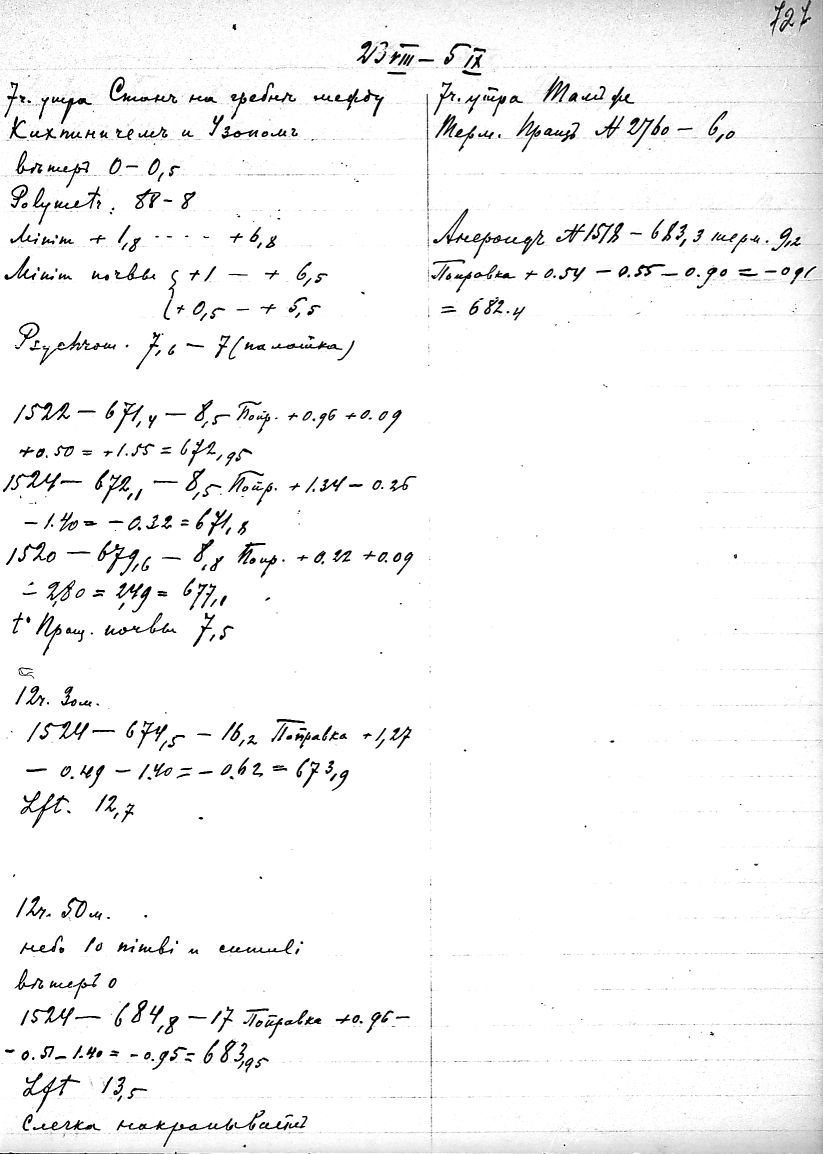 727
23 VIII – 5 IX
7ч. утра Станъ на гребнѣ между
Кихпиничемъ и Узономъ
вѣтеръ 0 – 0,5
Polymetr. 88 – 8
Minim + 1,8 ····· +6,8
Minim почвы { +1 — + 6,5
{ +0,5 — + 5,5
Psychrom. 7,6 — 7 (палатка)
1522 — 671,4 — 8,5 Попр. +0.96 +0.09
+0.50 = +1.55 = 672,95
1524 — 672,1 — 8,5 Попр. +1.34 — 0.26
— 1.40 = — 0.32 = 671,8
1520 — 679,6 — 8,8 Попр. +0.22 +0.09
— 2,80 = 2,49 = 677,1
t° Пращ. почвы 7,5
12ч. 30м.
1524 — 674,5 — 16,2 Поправка +1,27
— 0.49 — 1.40 = — 0.62 = 673,9
Lft. 12,7
12ч. 50м.
небо 10 nimbi и cumuli
вѣтеръ 0
1524 — 684,8 — 17 Поправка +0.96 —
— 0.51 — 1.40 = — 0.95 = 683,95
Lft 13,5
Слегка накрапываетъ
7ч. утра
Терм. Пращъ № 2760 — 6,0
Анероидъ № 1518 — 683,3 терм. 9,2
Поправка + 0.54 — 0.55 — 0.90 = — 0.91
= 682.4